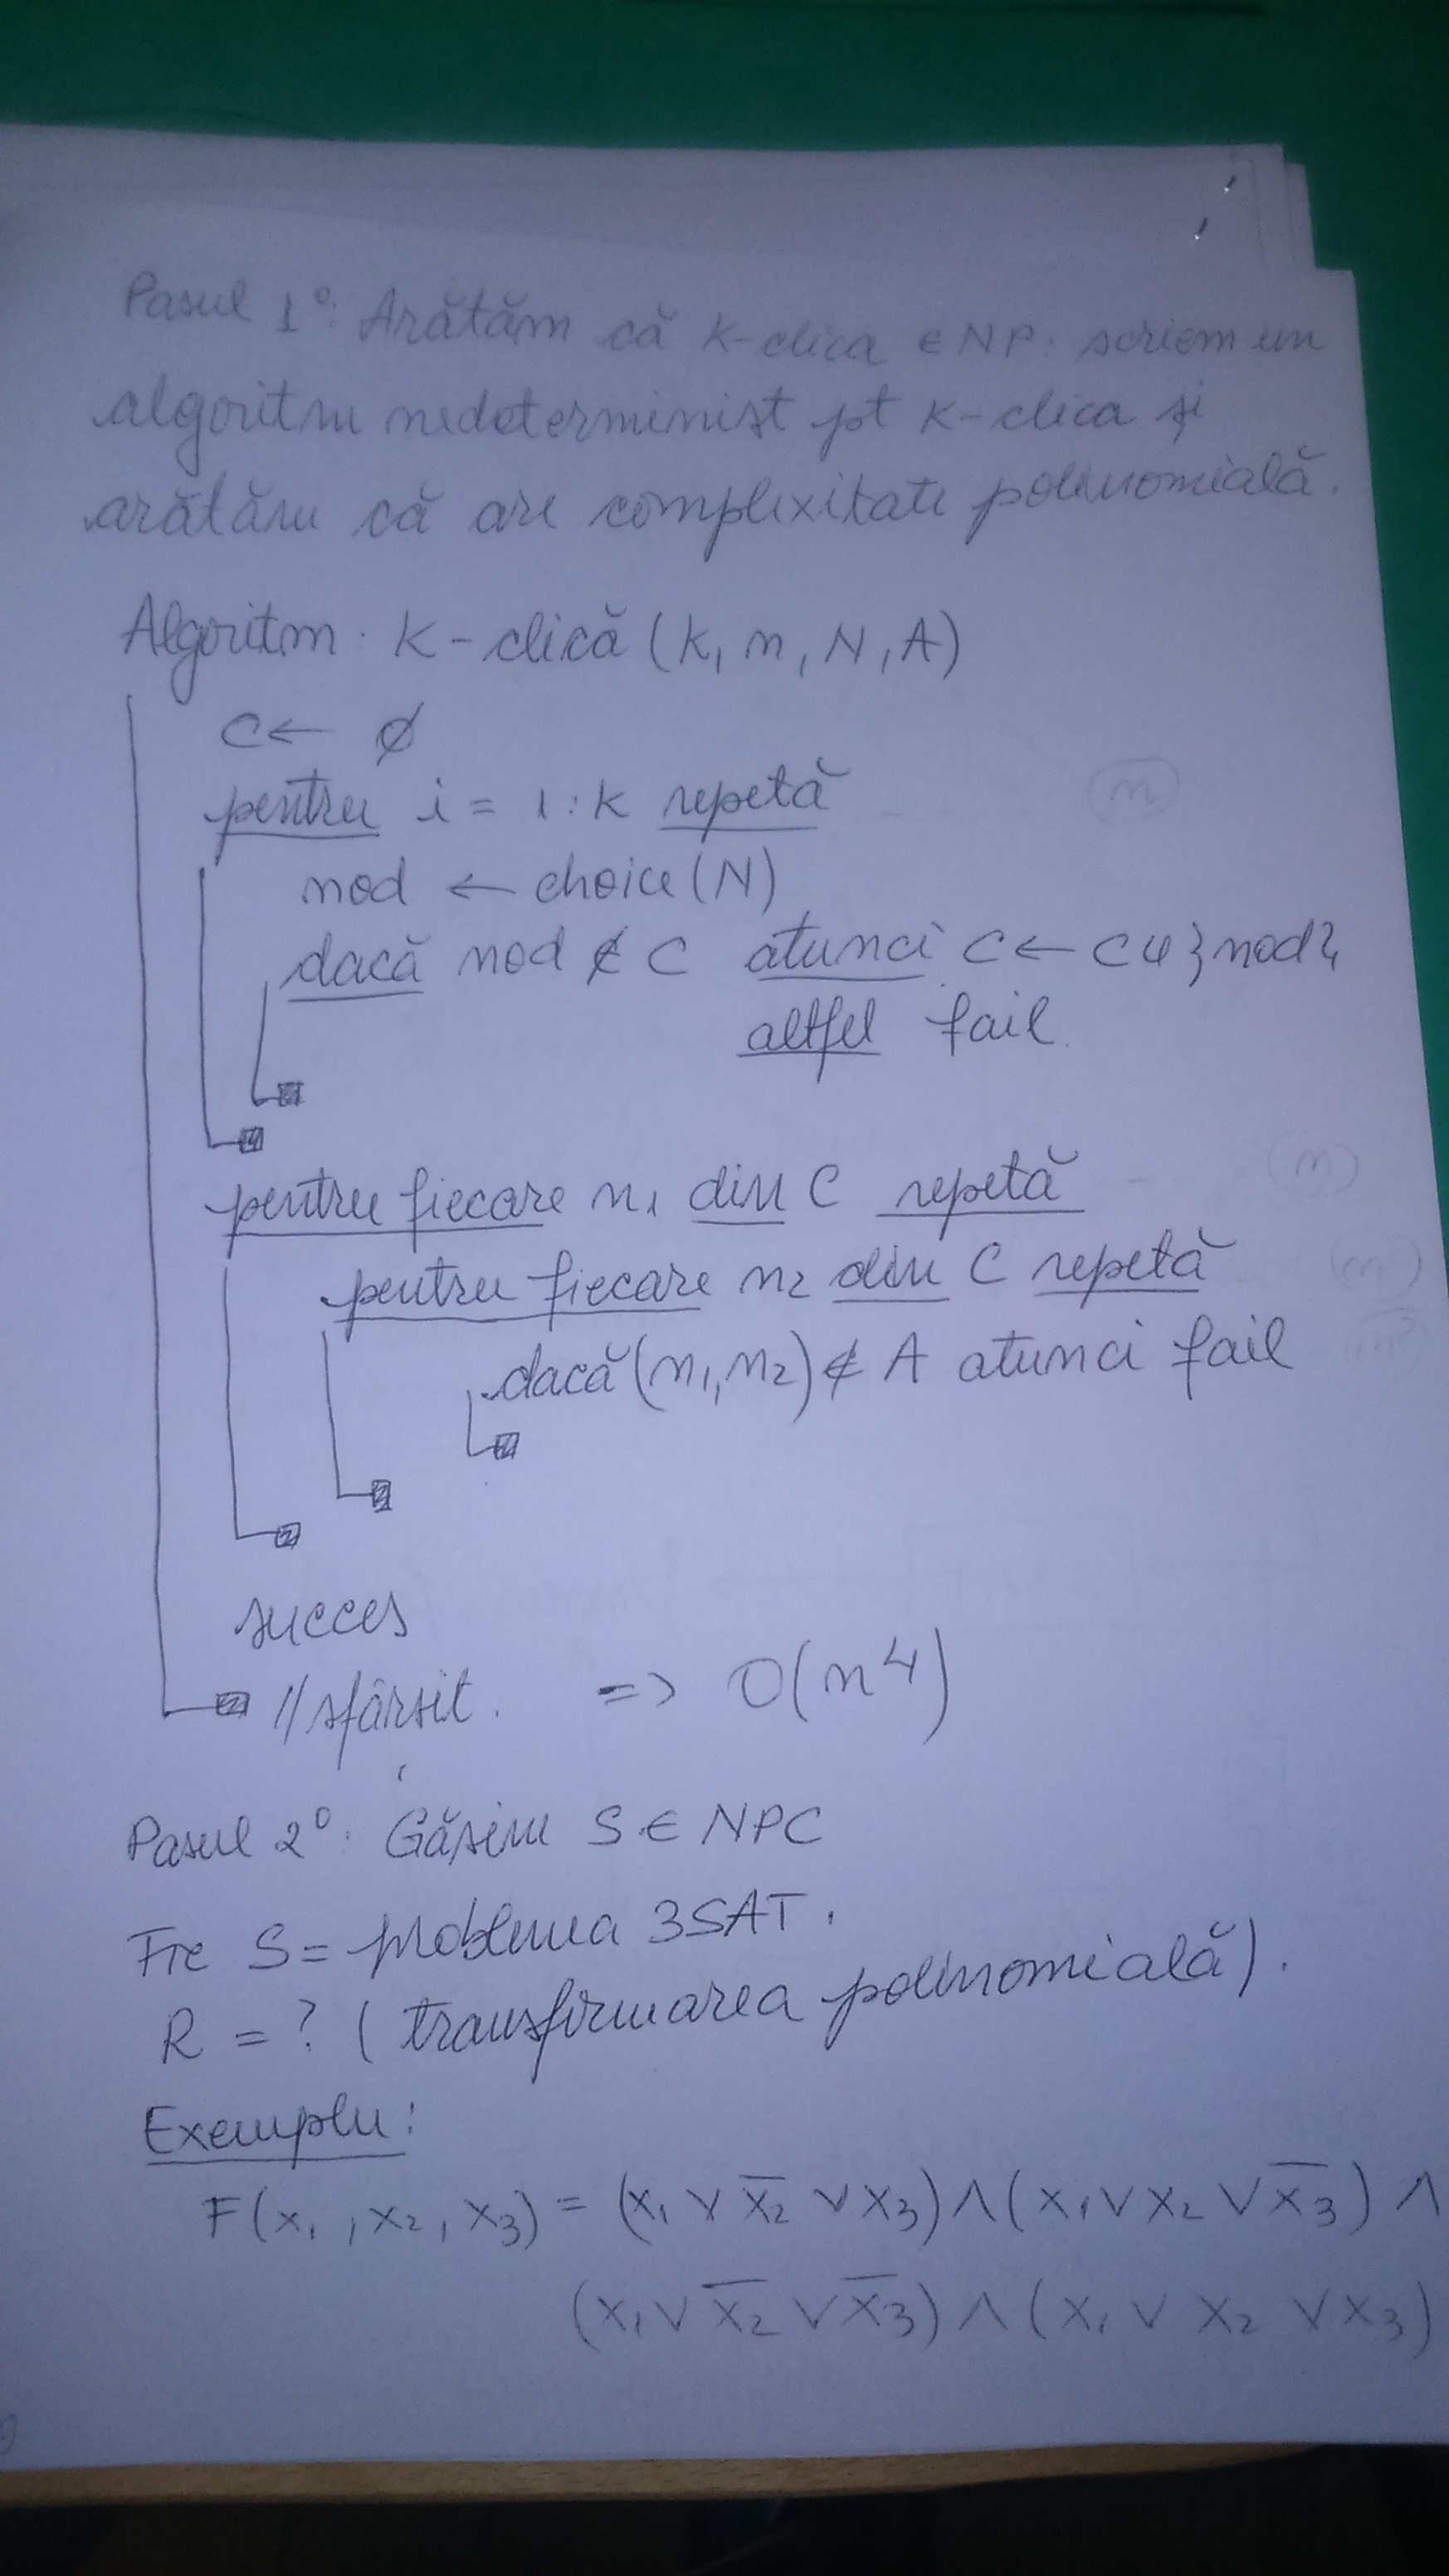 Pasul 1°: Arătăm că K-clica ∈ NP: scriem un
algoritm nedeterminist pt K-clica și
arătăm că are complexitate polinomială.
Algoritm: K-clică (K, n, N, A)
C ← ∅
pentru i = 1:K repetă n
nod ← choice(N)
dacă nod ∉ C atunci C ← C ∪ {nod}
altfel fail.
pentru fiecare n1 din C repetă n
pentru fiecare n2 din C repetă n
dacă (n1, n2) ∉ A atunci fail n²
succes
//sfârșit. => O(n⁴)
Pasul 2°: Găsim S ∈ NPC
Fie S = problema 3SAT.
R = ? (transformarea polinomială).
Exemplu:
F(x1, x2, x3) = (x1 ∨ x̅2 ∨ x3) ∧ (x1 ∨ x2 ∨ x̅3) ∧
(x1 ∨ x̅2 ∨ x̅3) ∧ (x1 ∨ x2 ∨ x3)